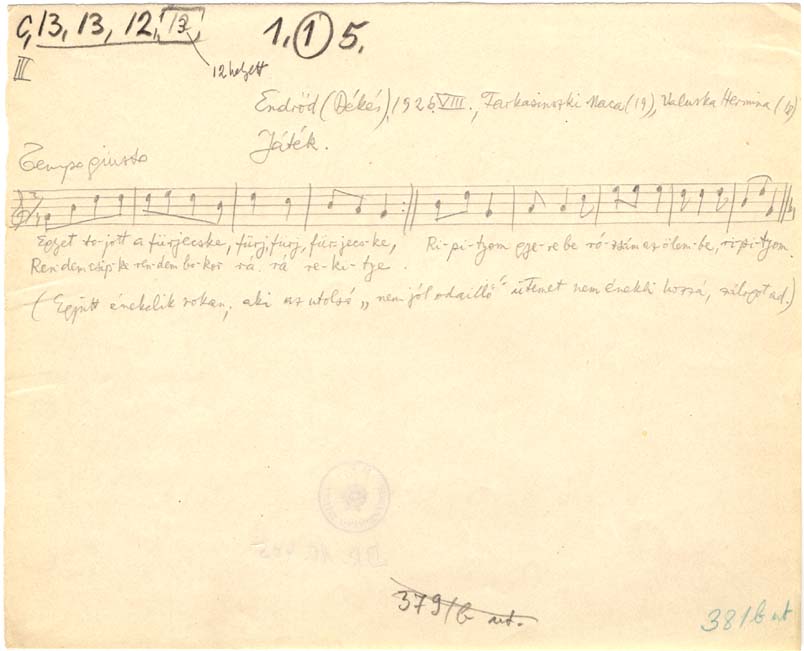 C, 13, 13, 12, 13, 1, 1 5,
III
12 helyett
Endrőd (Békés), 1926 VIII., Farkasinszki Maca (19), Valuska Hermina (
Játék.
Tempo giusto
Egyet to-jott a fürjecske, fürj, fürj, für-jecs-ke, Ri-pi-tyom gye-re be ró-zsám az ölem-be, ri-pi-tyom.
Ren-dem csip-ke ren-dem bo-kor rá rá re-ki-tye.
(Együtt éneklik sokan, aki az utolsó „nem jól odaillő" ütemet nem énekli hozzá, zálogot ad.)
379/b
38/b